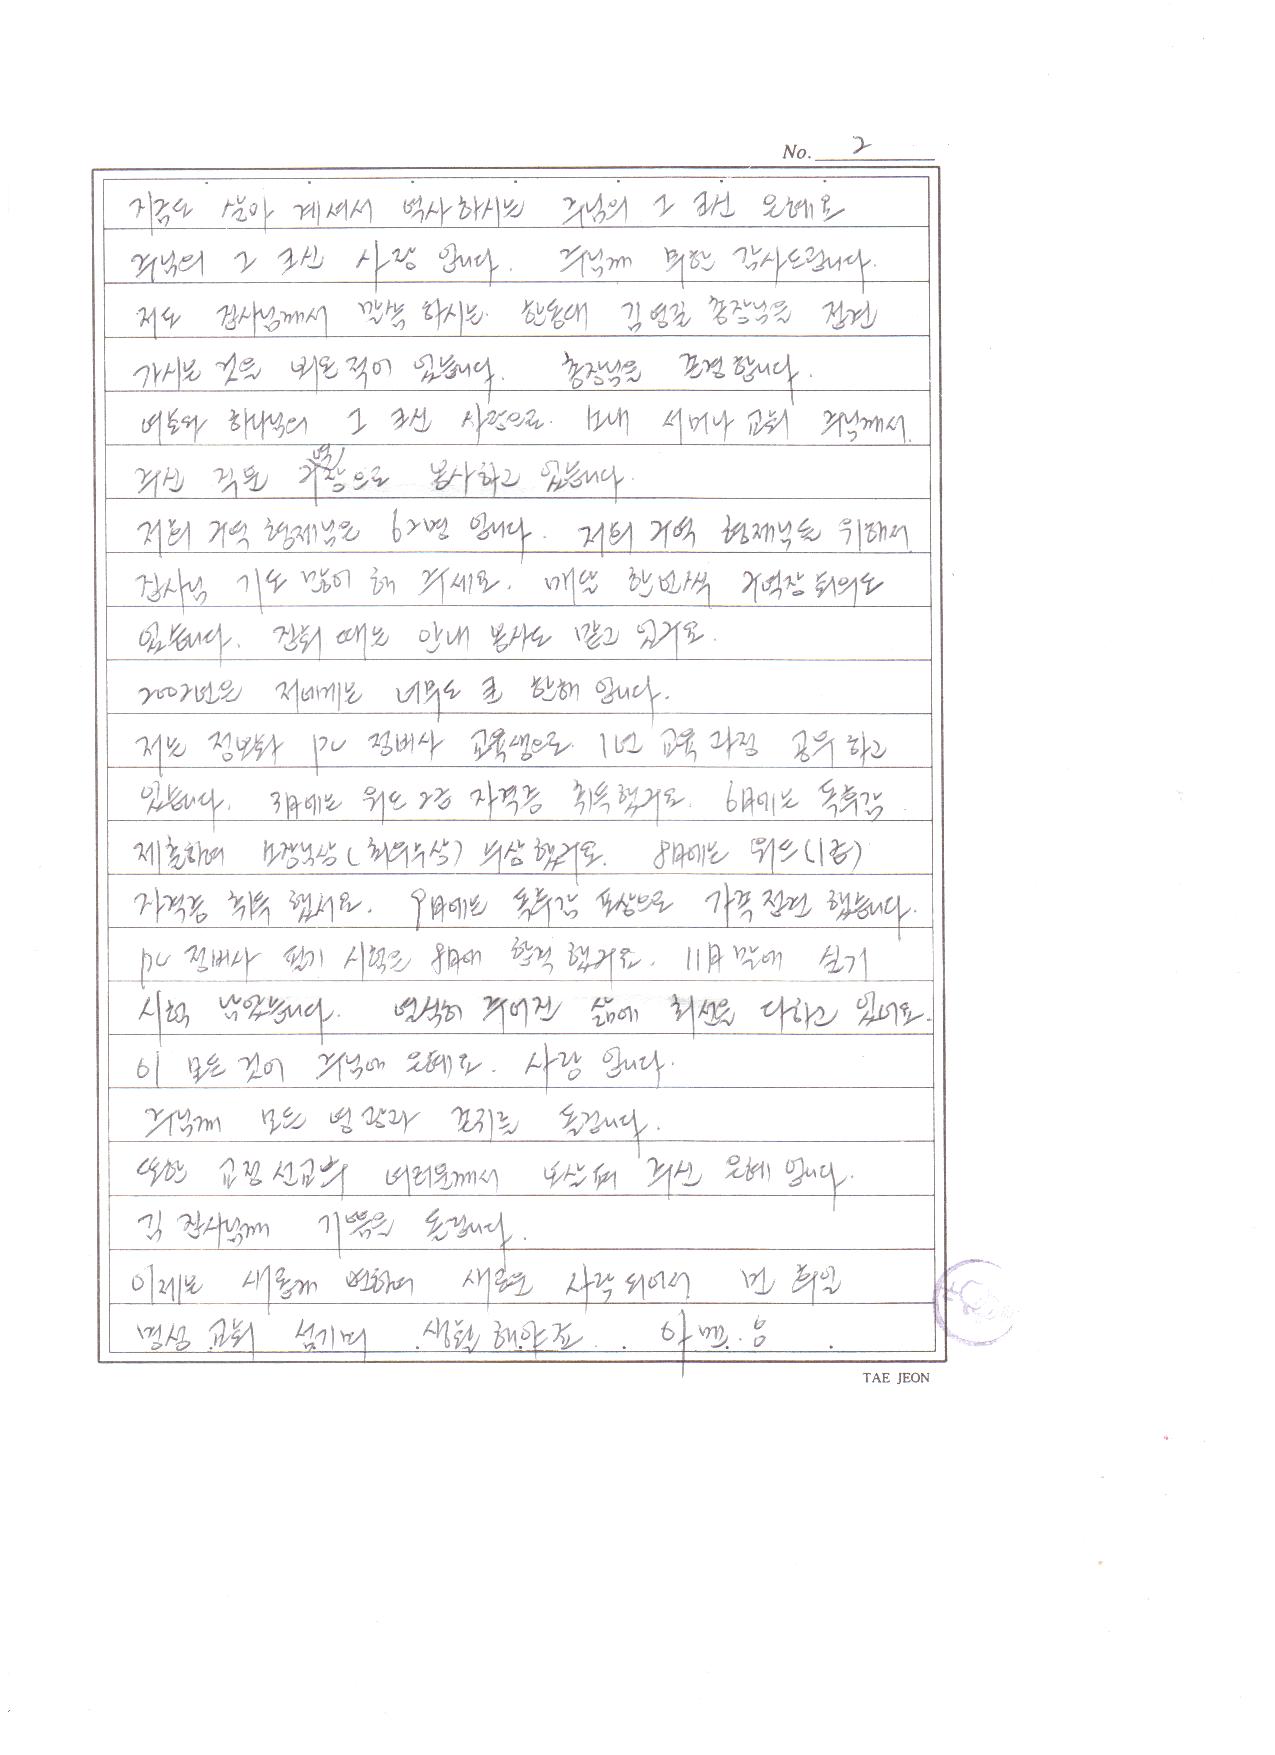 No. 2
지금도 살아 계셔서 역사하시는 주님의 그 크신 은혜요
주님의 그 크신 사랑 입니다. 주님께 며한 감사드립니다.
저도 집사님께서 말씀 하시는 한동대 김영길 총장님을 접견
가시는 것을 뵈온 적이 있습니다. 총장님을 존경 합니다.
여호와 하나님의 그 크신 사랑으로. 1년내 서머나 교회 주님께서
주신 작은 구역장으로 봉사하고 있습니다.
저희 구역 형제님은 62명 입니다. 저희 구역 형제님들 위해서
집사님 기도 많이 해 주세요. 매달 한번씩 구역장 회의도
있습니다. 집회 때는 안내 봉사도 맡고 있구요.
2002년은 저에게는 너무도 큰 한해 입니다.
저는 정보화 PC 정비사 교육생으로. 1년 교육 과정 공부 하고
있습니다. 3月에는 워드 2급 자격증 취득했구요. 6月에는 독후감
제출하여 소장님상(최우수상) 수상 했구요. 8月에는 워드(1급)
자격증 취득 했서요. 9月에는 독후감 포상으로 가족 접견 했습니다.
PC 정비사 필기 시험은 8月에 합격 했구요. 11月 말에 실기
시험 남았습니다. 열심히 주어진 삶에 최선을 다하고 있어요.
이 모든 것이 주님에 은혜요. 사랑 입니다.
주님께 모든 영광과 존귀를 돌립니다.
또한 교정 선교회 여러분께서 보살펴 주신 은혜 입니다.
김 집사님께 기쁨을 돌립니다.
이제는 새롭게 변하여 새로운 사람 되어서 먼 훗일
명성 교회 섬기며 생활 해야죠. 아멘.
TAE JEON